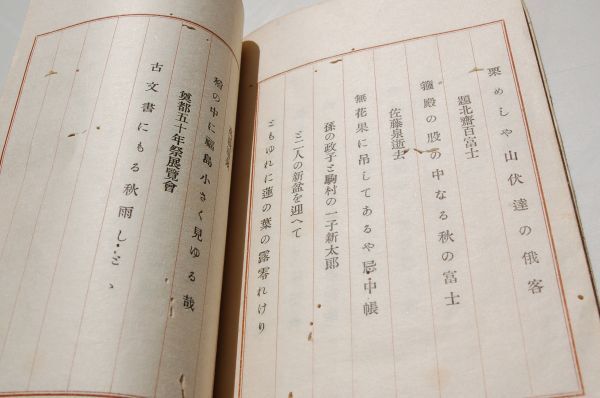 栗めしや山伏達の俄客
題北齋百富士
龝殿の股の中なる秋の富士
佐藤泉逝去
無花果に吊してあるや忌中帳
孫の政子と駒村の一子新太郎
と二人の新盆を迎へて
ともゆれに蓮の葉の露零れけり
稻の中に福島小さく見ゆる哉
奠都五十年祭展覽會
古文書にもる秋雨し